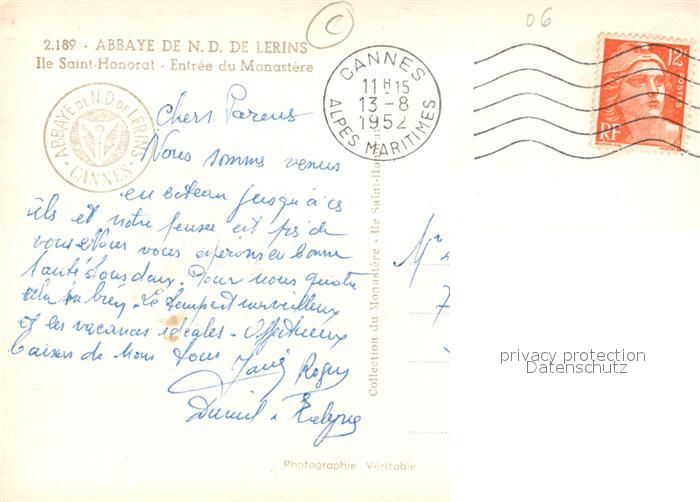 2.189 - ABBAYE DE N. D. DE LERINS
Ile Saint-Honorat - Entrée du Monastère
ABBAYE DE N.D. DE LÉRINS
CANNES
C
06
CANNES
11 H 15
13-8
1952
ALPES MARITIMES
12F
POSTES
RF
Chers Parents
Nous sommes venus
en bateau jusqu'à ces
îls et notre pensée est près de
vous. Nous vous espérons en bonne
santé tous deux. Pour nous quatre
cela va bien. Le temps est merveilleux
et les vacances idéales. Affectueux
baisers de nous tous
Roger
Daniel
Collection du Monastère - Ile Saint-Honorat
M
7
privacy protection
Datenschutz
Photographie Véritable